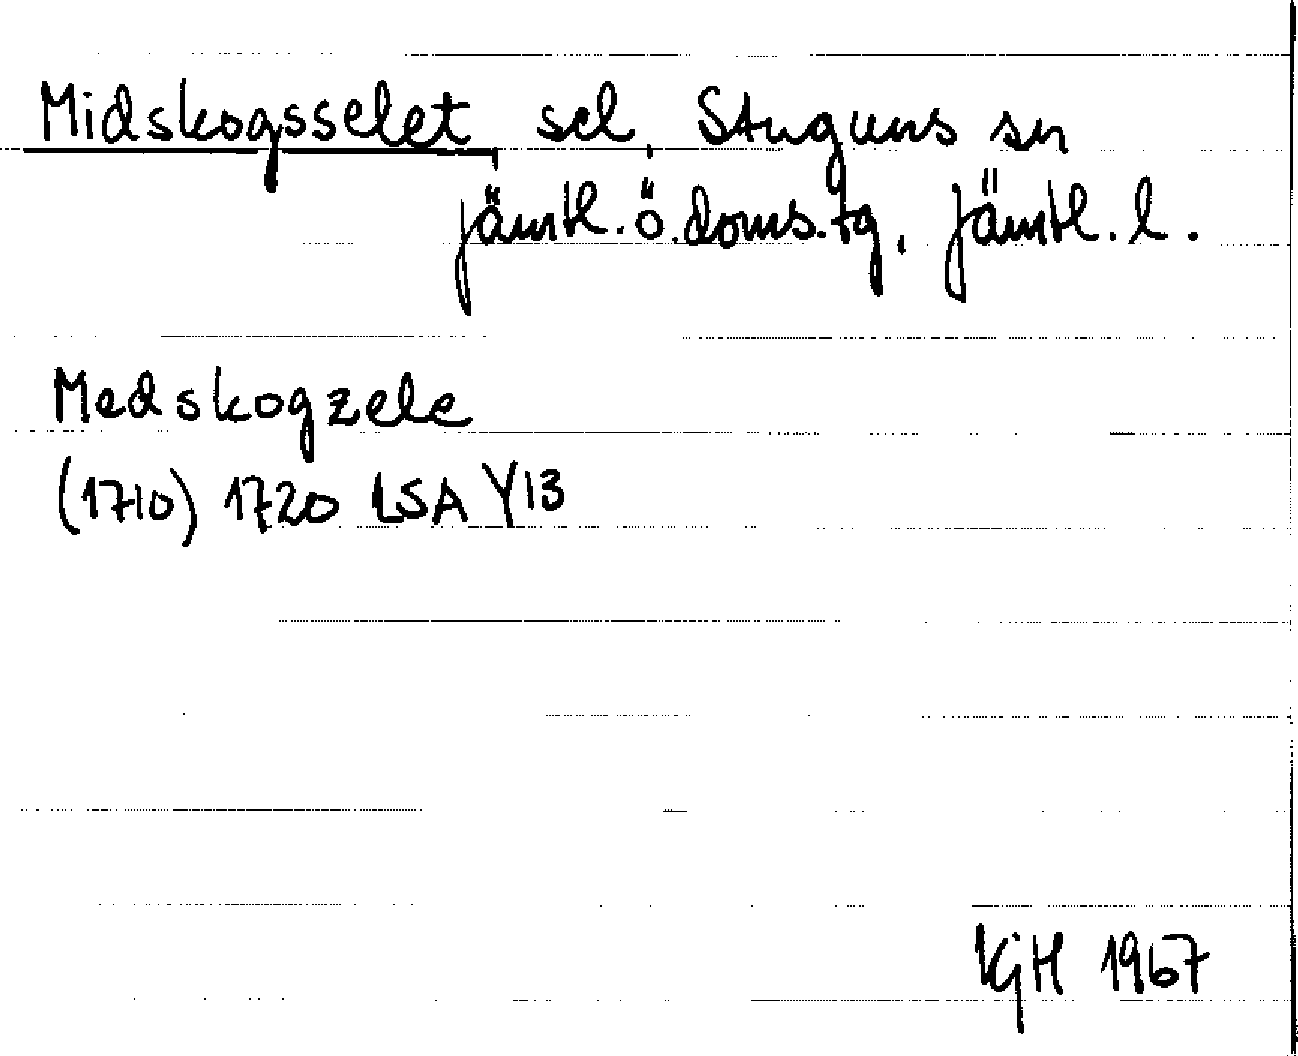 Midskogsselet, sel, Stuguns sn
Jämtl. ö. doms. tg, Jämtl. l.
Medskogzele
(1710) 1720 LSA Y13
KGH 1967